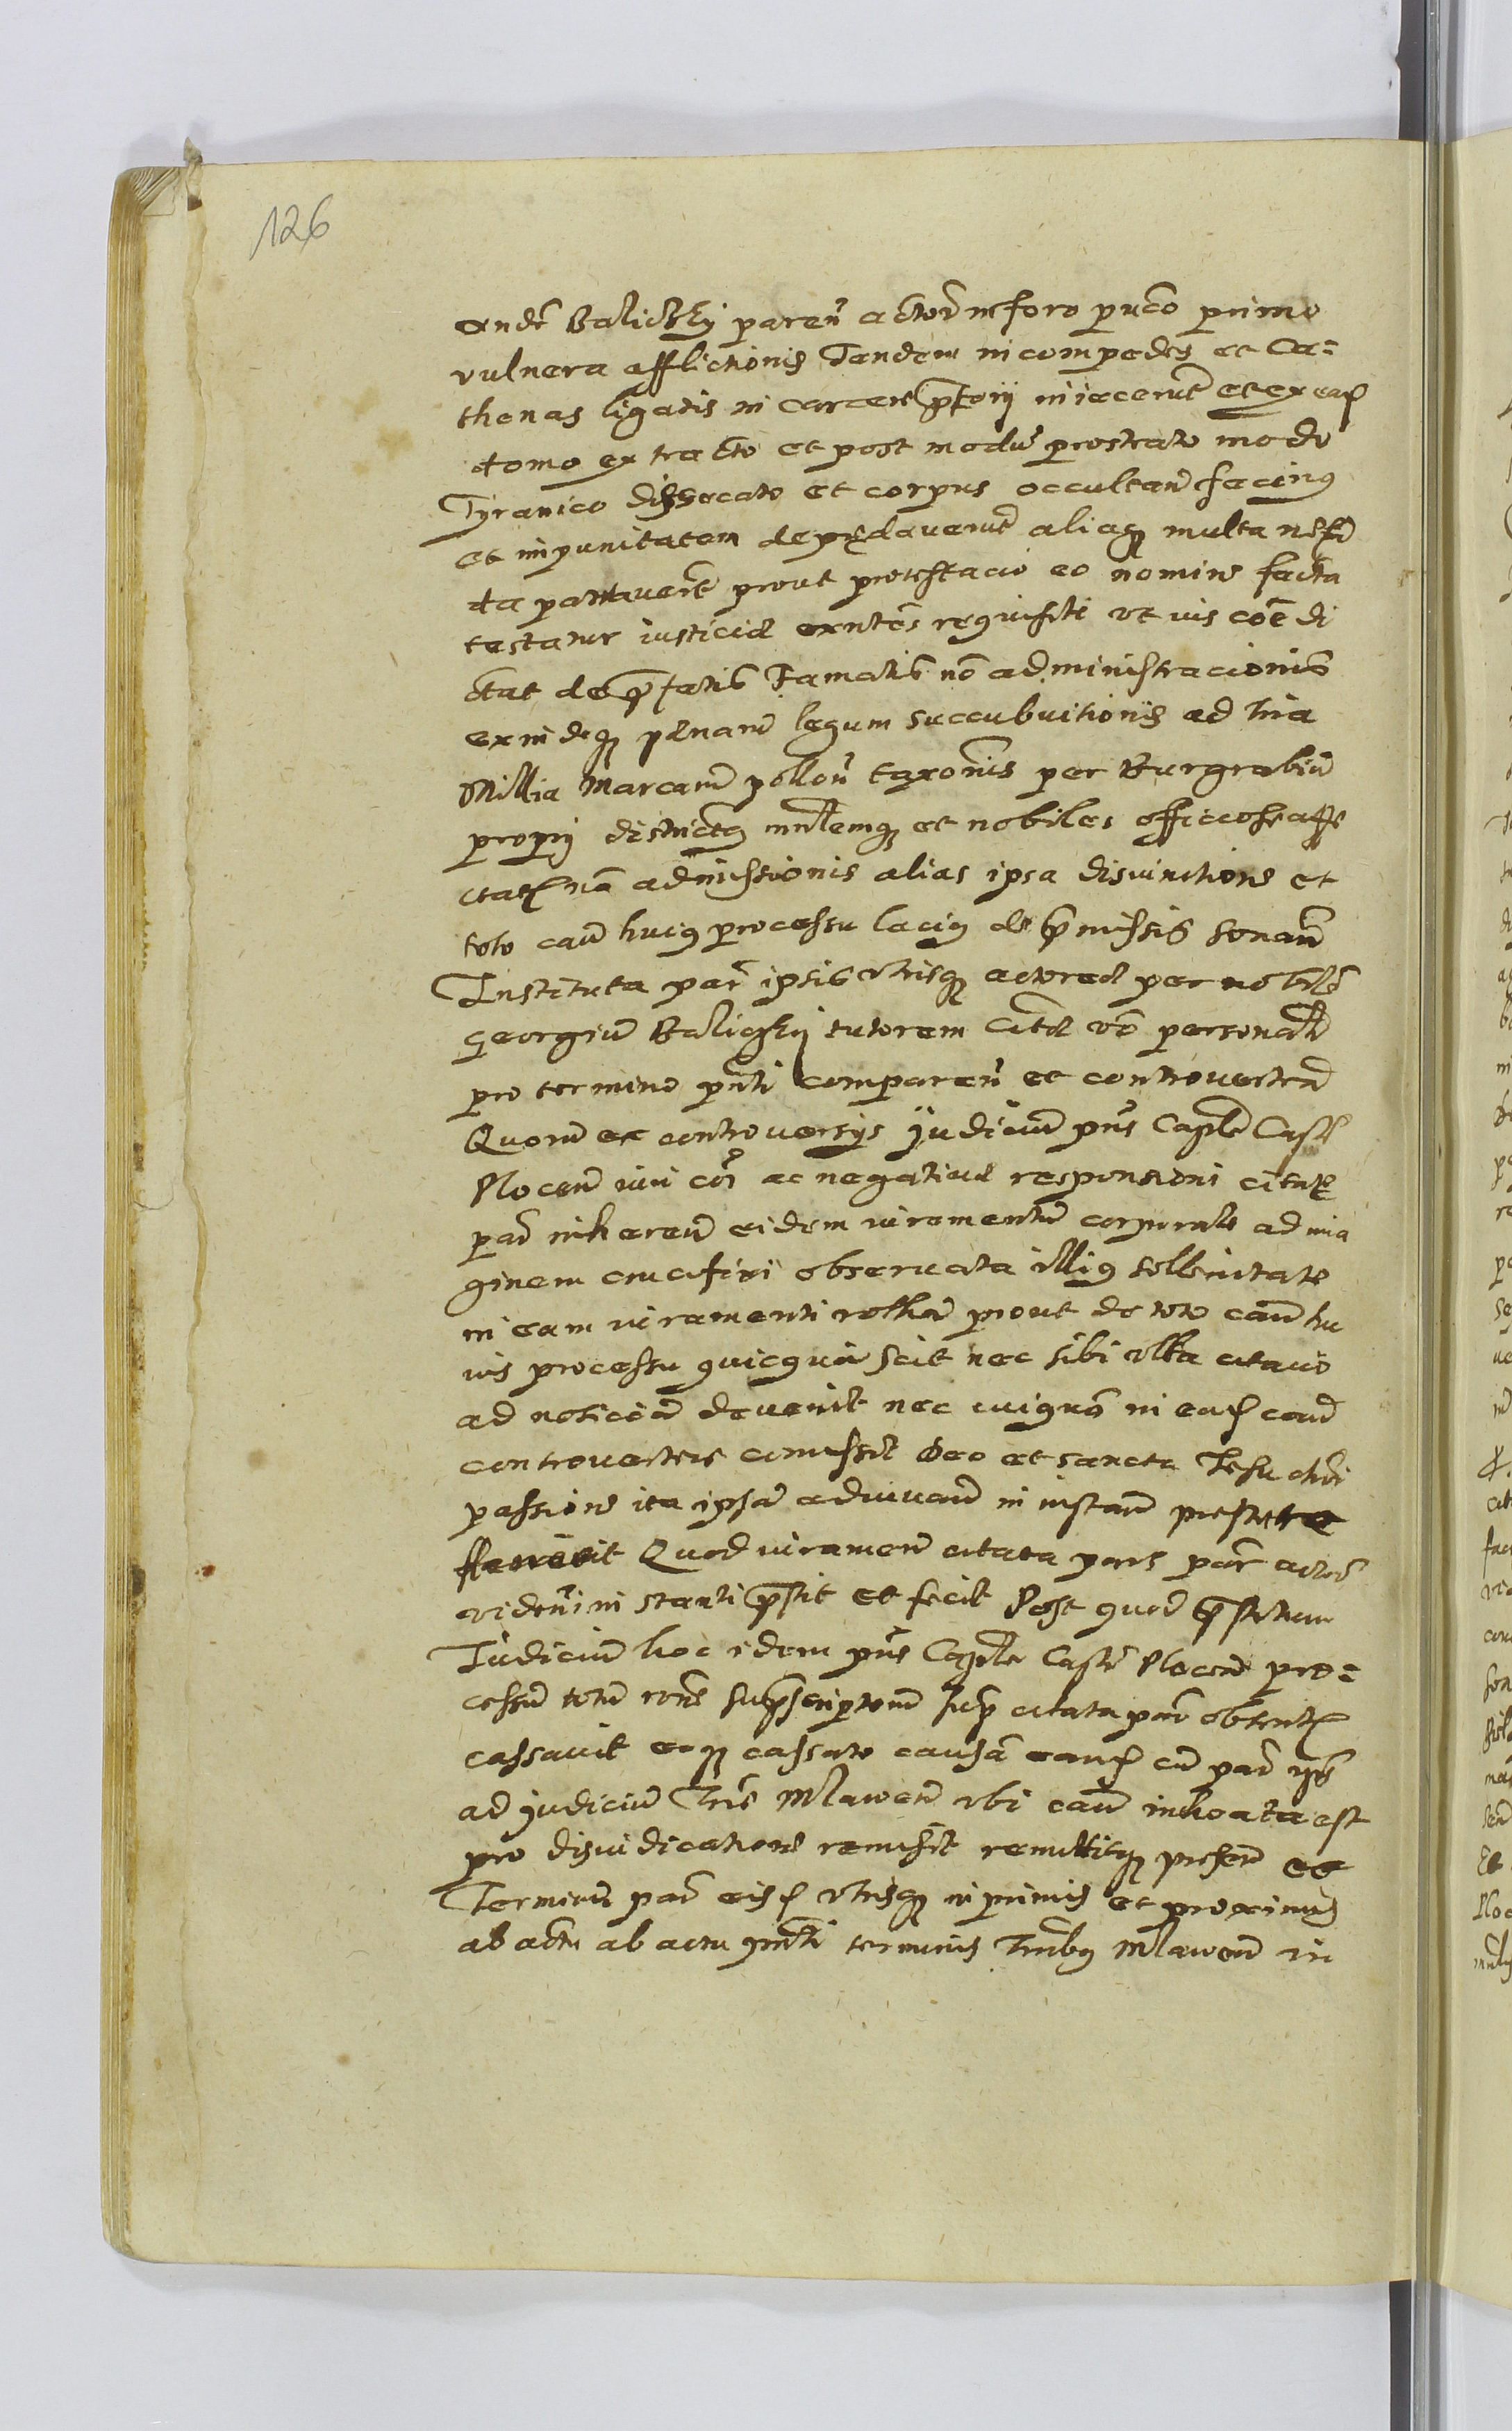 126
Andr Balickij paren actor in foro puco primo
vulnera afflictionis Tandem in compedes et Ca=
thenas ligatis in carcere ptorij iniecerut et ex eaq
domo extracto et post modu prostrato modo
Tyranico dissecato et corpus occultan facinq
et impunitatem depredaverut aliaq multa nefa
da patraverut prout protestacio eo nomine facta
testatur iusticie exntes requisiti ut ius coe di
ctat de pfatis Famatis no administracionis
exindeq penaru legum succubuitionis ad tria
Millia Marcaru pollon taxonis per Burgrabiu
proprij districtq et nobiles officiose
admissionis alias ipsa disiunctione et
toto cau huiq processu laciq de pmissis sonan
Instituta par ipsis utrisq actorea per nobile
Georgiu Balickij tutorem Citta vo personalr
pro termino pnti comparen et controverten
Quoru ex controversijs Judiciu pns Caplle Castr
Plocen viri coi ac negative responsioni citate
par inheren eidem iuramentu corporale ad ima
ginem crucifixi observata illiq sollenitate
in eam iuramenti rotha prout de toto cau hu
ius processu quicqua scit nec sibi ulla citacio
ad noticia devenit nec cuiqua in eaq caud
controvertere comissit Deo et sancta Iesu chri
passione ita ipsa adiuvan in instan prestare
decrevit Quod iuramen citata pars par actor
viden instanti pstit et fecit Post quod pstitum
Judiciu hoc idem pns Caplle Castr Plocen pro=
cessu totu rone supscriptoru sup citata par obtent
cassavit eoq cassato causa eanq cu par ipis
ad judiciu Tris Mlawen ubi cau inhoata est
pro disiudicatione remisit remittitq presen et
Terminu par eisq utrisq in primis et proximis
ab actu ab actu pnti terminis Trribq Mlawen in